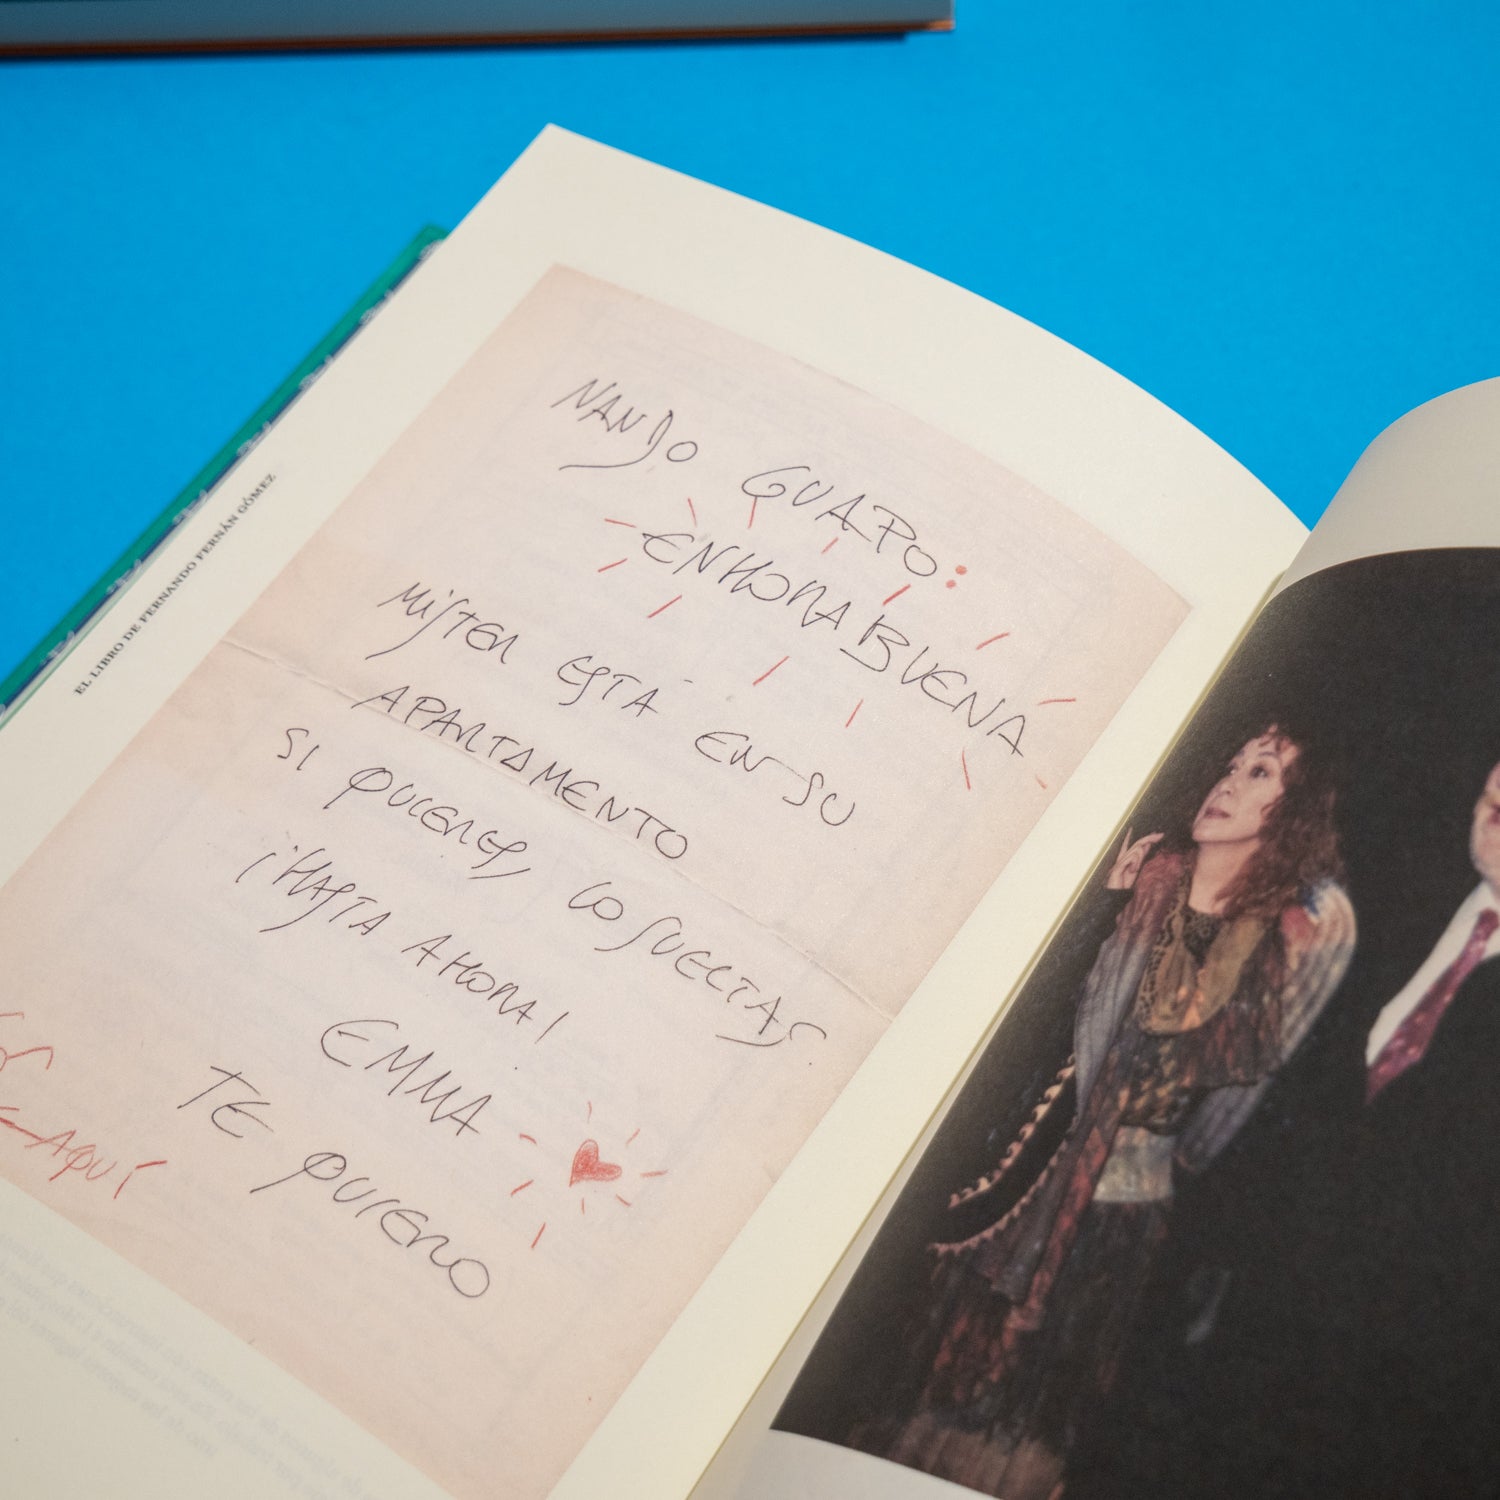 EL LIBRO DE FERNANDO FERNÁN GÓMEZ
NANDO GUAPO:
ENHORABUENA
MISTER ESTÁ EN SU
APARTAMENTO
SI QUIERES, LO SUELTAS
¡HASTA AHORA!
EMMA
TE QUIERO
AQUÍ